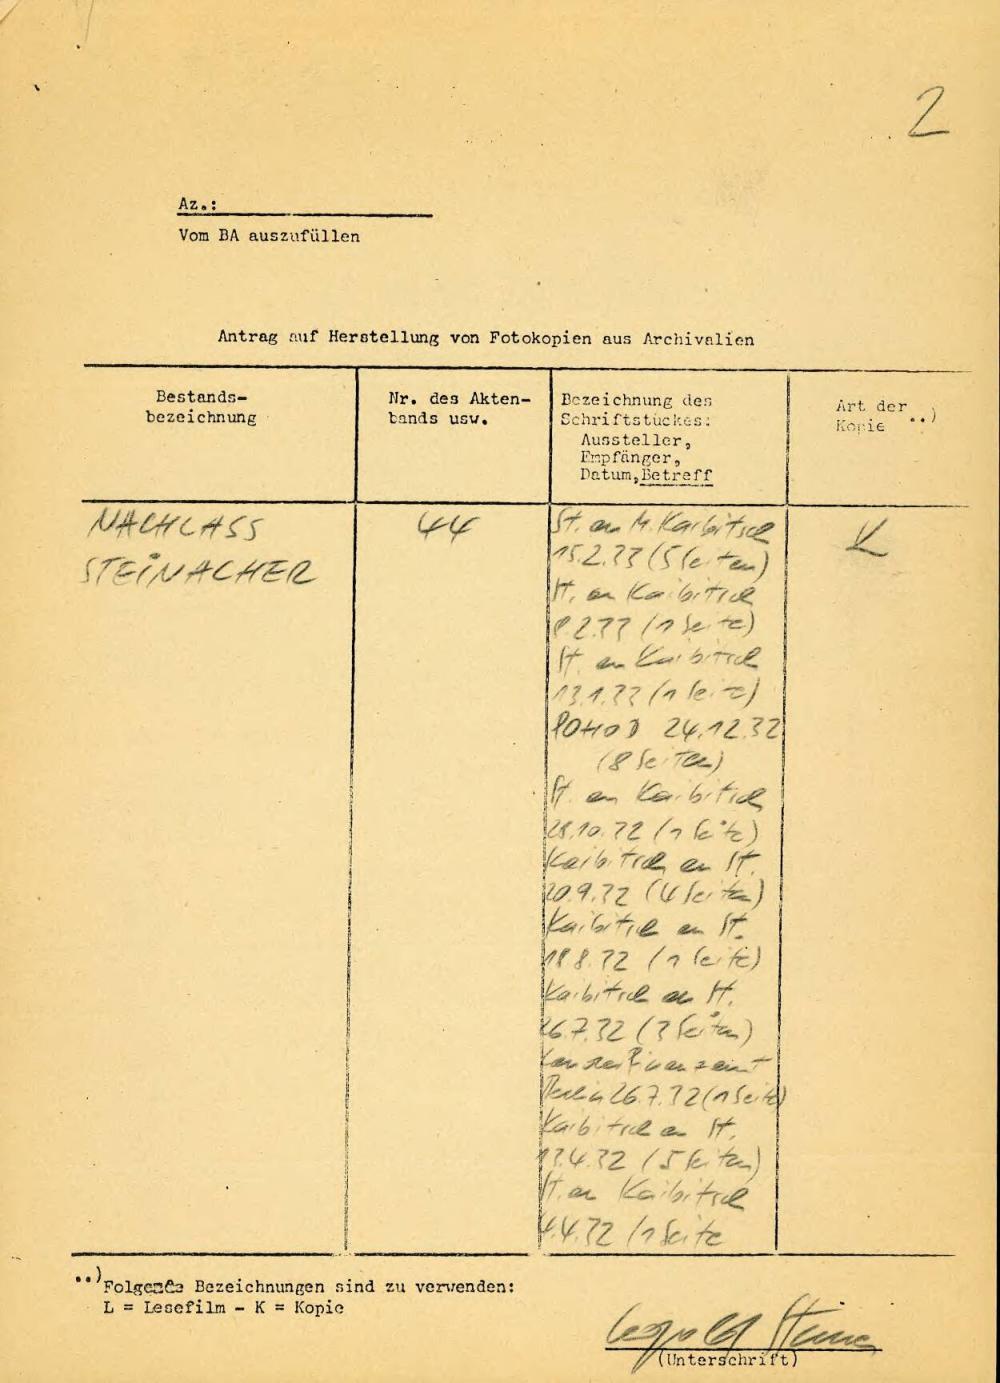 2
Az.:
Vom BA auszufüllen
Antrag auf Herstellung von Fotokopien aus Archivalien
Bestands-
bezeichnung
Nr. des Akten-
bands usw.
Bezeichnung des
Schriftstückes:
Aussteller,
Empfänger,
Datum, Betreff
Art der
Kopie ..)
NACHLASS
STEINACHER
44
St. an M. Karbitsch
15.2.33 (5 Seiten)
St. an Kaibitsch
8.2.33 (1 Seite)
St. an Kaibitsch
13.1.33 (1 Seite)
24.12.32
(8 Seiten)
St. an Kaibitsch
28.10.32 (1 Seite)
Kaibitsch an St.
20.9.32 (4 Seiten)
Kaibitsch an St.
18.8.32 (1 Seite)
Kaibitsch an St.
26.7.32 (3 Seiten)
Berlin 26.7.32 (1 Seite)
Kaibitsch an St.
13.4.32 (5 Seiten)
St. an Kaibitsch
4.4.32 (1 Seite
K
..) Folgende Bezeichnungen sind zu verwenden:
L = Lesefilm - K = Kopie
Leopold
(Unterschrift)